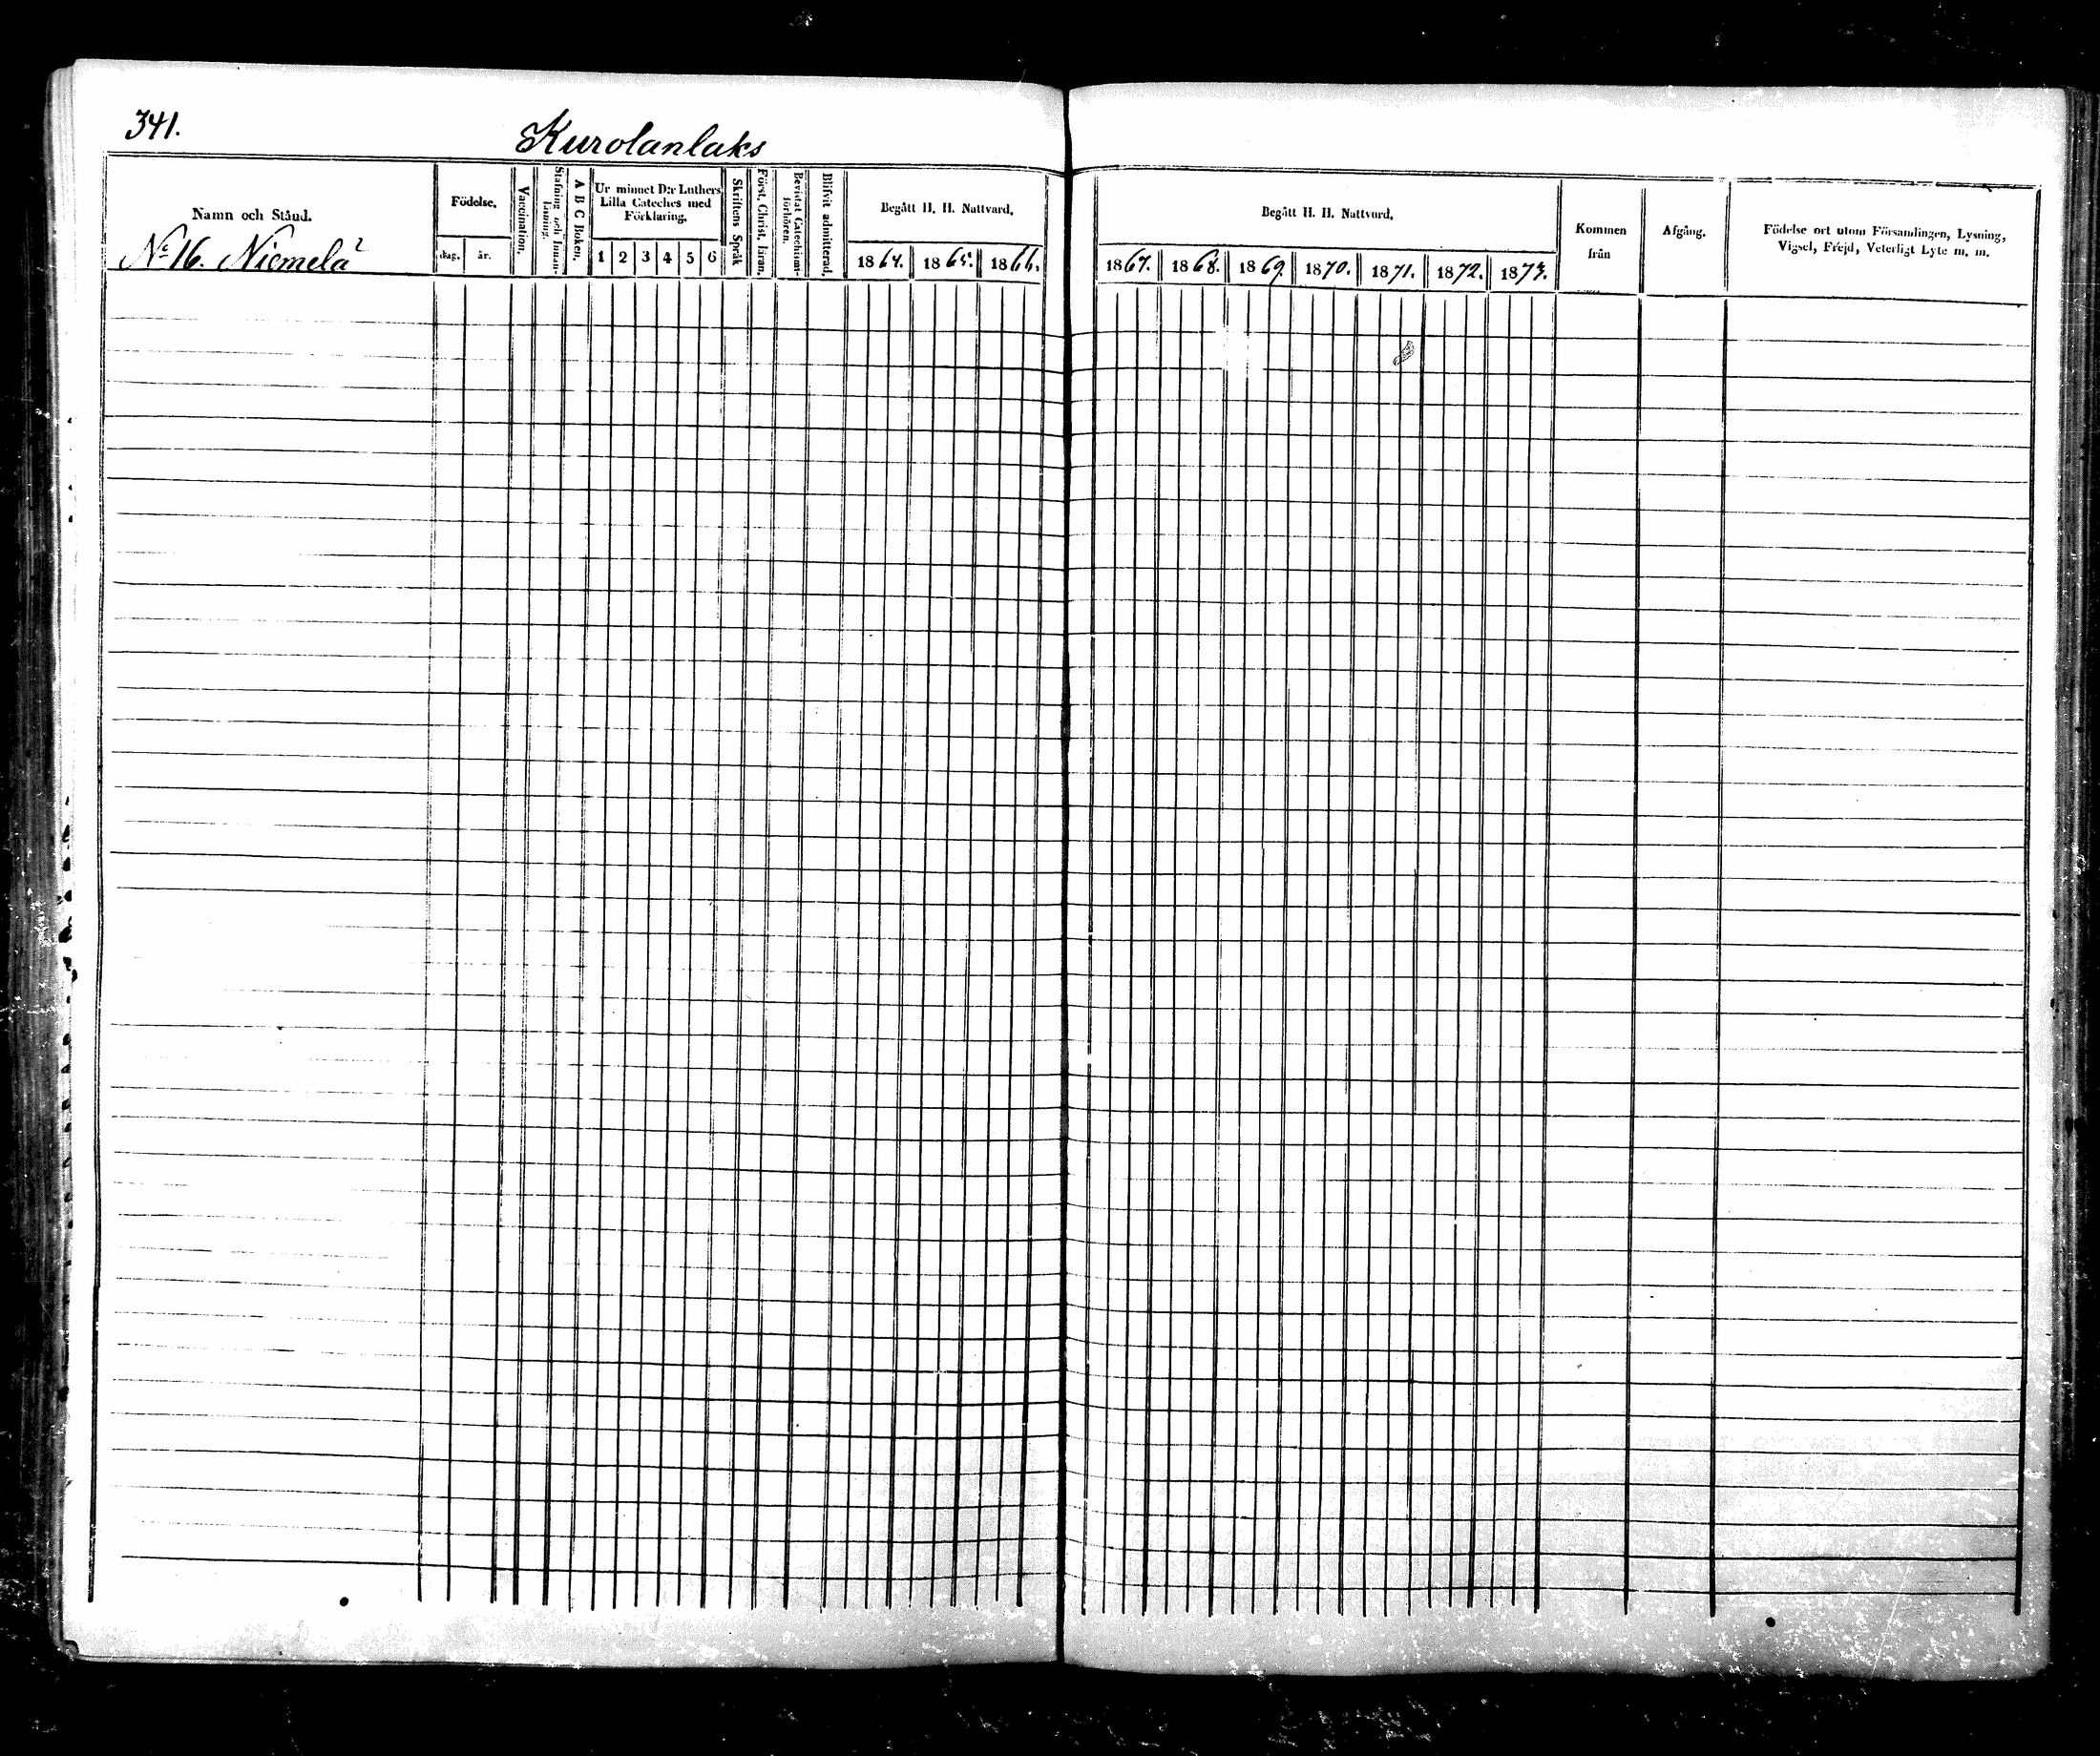 341.
Kurolanlaks
Namn och Stånd.
No 16. Niemelä
Födelse.
dag.
år.
Vaccination.
Stafning och Innanläsning.
A B C Boken.
Ur minnet D:r Luthers Lilla Cateches med Förklaring.
1 2 3 4 5 6
Skriftens Språk
Först. Christ. läran.
Bevistat Catechismiförhören.
Blifvit admitterad.
Begått H. H. Nattvard.
1864. 1865. 1866.
Begått H. H. Nattvard.
1867. 1868. 1869. 1870. 1871. 1872. 1873.
Kommen från
Afgång.
Födelse ort utom Församlingen, Lysning,
Vigsel, Frejd, Veterligt Lyte m. m.